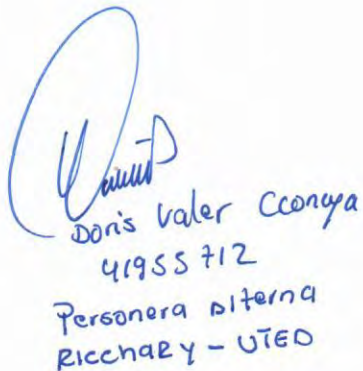 Doris Valer Cconoya
41955712
Personera Alterna
RICCHARY - UTED